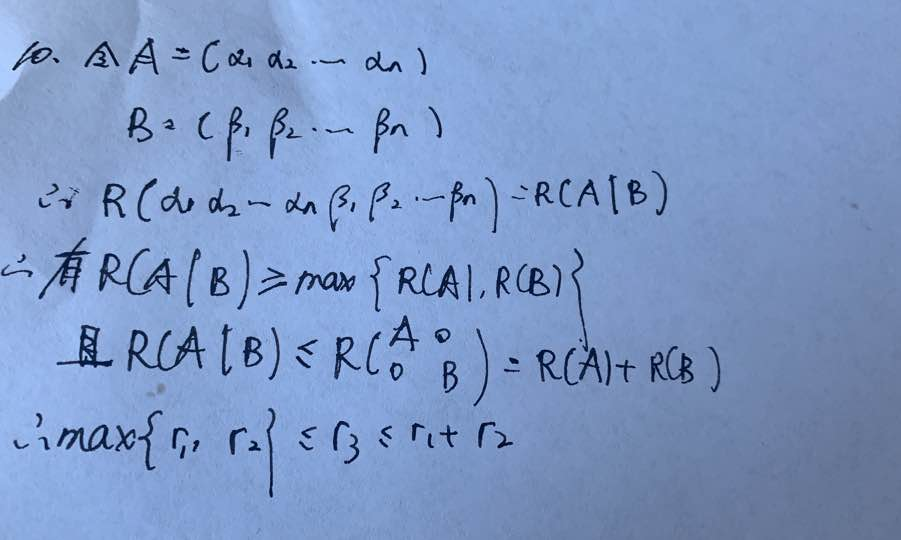 10. 令A=(α₁ α₂ … αn)
B=(β₁ β₂ … βn)
∵ R(α₁ α₂ … αn β₁ β₂ … βn)=R(A|B)
∴ 有 R(A|B) ≥ max{R(A), R(B)}
且 R(A|B) ≤ R(A 0 0 B) = R(A)+R(B)
∴ max{r₁, r₂} ≤ r₃ ≤ r₁+r₂